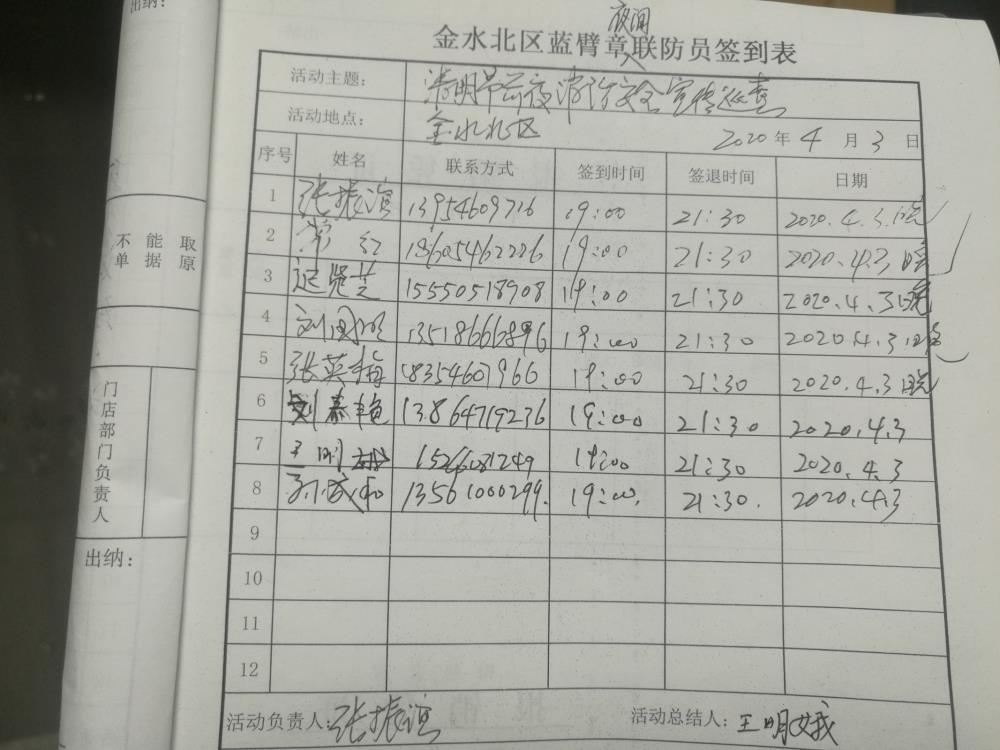 出纳:
夜间
金水北区蓝臂章联防员签到表
活动主题: 清明节前夜消防安全宣传巡查
活动地点: 金水北区 2020年4月3日
序号 姓名 联系方式 签到时间 签退时间 日期
1 张振谊 13954609716 19:00 21:30 2020.4.3.晚
2 常红 18605462226 19:00 21:30 2020.4.3晚
3 15550518908 19:00 21:30 2020.4.3晚
4 刘国 13518666896 19:00 21:30 2020.4.3晚
5 张英梅 18354601966 19:00 21:30 2020.4.3晚
6 刘春艳 13864719236 19:00 21:30 2020.4.3
7 王明娥 15266081249 19:00 21:30 2020.4.3
8 13561000299. 19:00. 21:30. 2020.4.3
9
10
11
12
活动负责人: 张振谊 活动总结人: 王明娥
不能取
单据原
门店部门负责人
出纳: